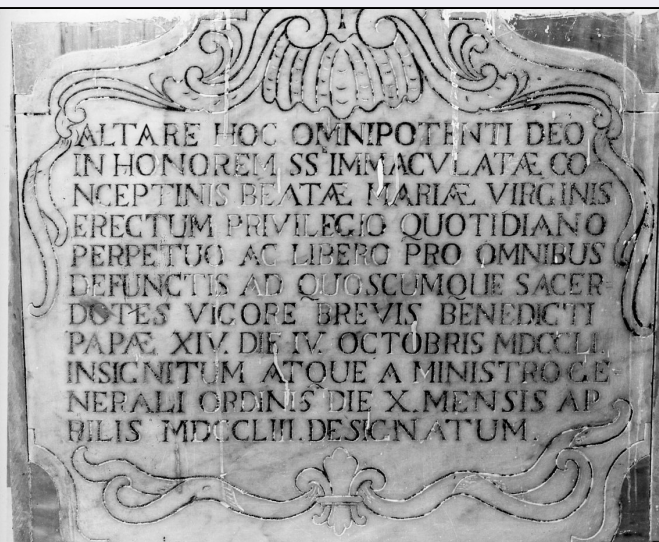 ALTARE HOC OMNIPOTENTI DEO
IN HONOREM SS IMMACVLATÆ CO
NCEPTINIS BEATÆ MARIÆ VIRGINIS
ERECTUM PRIVILEGIO QUOTIDIANO
PERPETUO AC LIBERO PRO OMNIBUS
DEFUNCTIS AD QUOSCUMQUE SACER-
DOTES VIGORE BREVIS BENEDICTI
PAPÆ XIV. DIE IV. OCTOBRIS MDCCLI.
INSIGNITUM ATQUE A MINISTRO GE-
NERALI ORDINIS DIE X. MENSIS AP
RILIS MDCCLIII. DESIGNATUM.